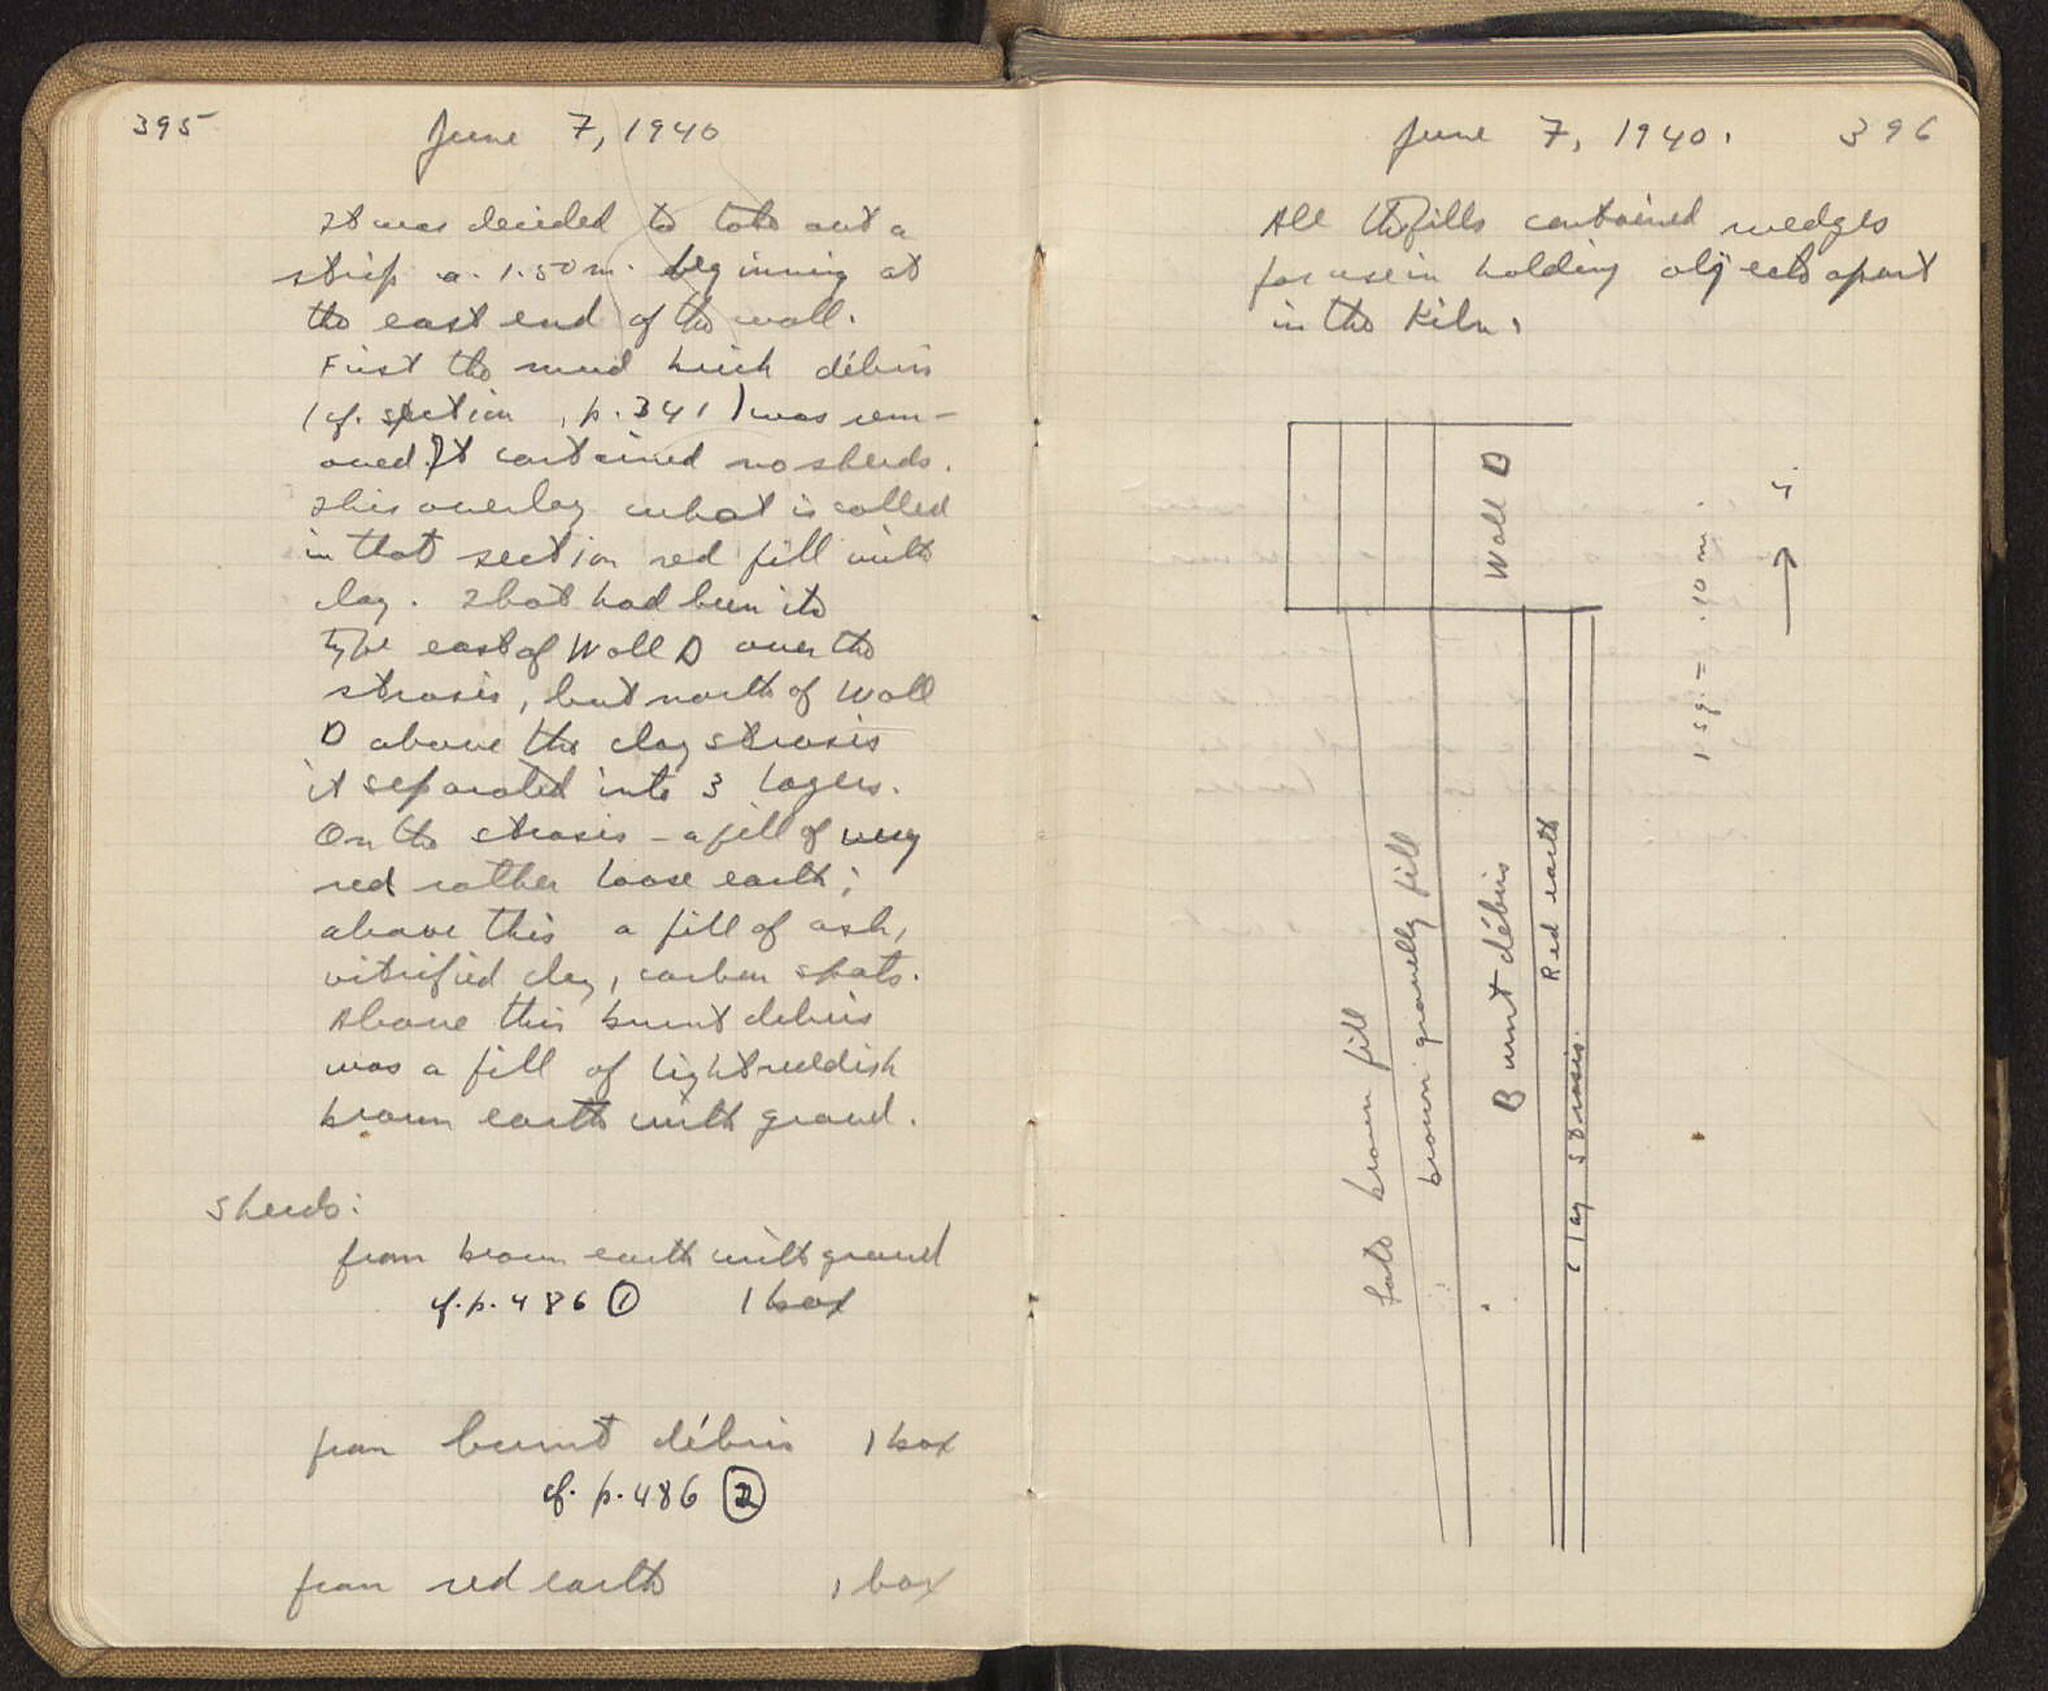 395
June 7, 1940
It was decided to take out a
strip a. 1.50 m. beginning at
the east end of the wall.
First the mud brick débris
(cf. section, p. 341) was rem-
oved. It contained no sherds.
This overlay what is called
in that section red fill with
clay. That had been its
type east of Wall D over the
strosis, but north of Wall
D above the clay strosis
it separated into 3 layers.
On the strosis - a fill of very
red rather loose earth;
above this a fill of ash,
vitrified clay, carbon spots.
Above this burnt debris
was a fill of light reddish
brown earth with gravel.
Sherds:
from brown earth with gravel
cf. p. 486 ① 1 box
from burnt débris 1 box
cf. p. 486 ②
from red earth 1 box
June 7, 1940.
396
All the fills contained wedges
for use in holding objects apart
in the kiln.
Wall D
late brown fill
brown gravelly fill
Burnt débris
Red earth
Clay strosis.
1 sq. = .10 m.